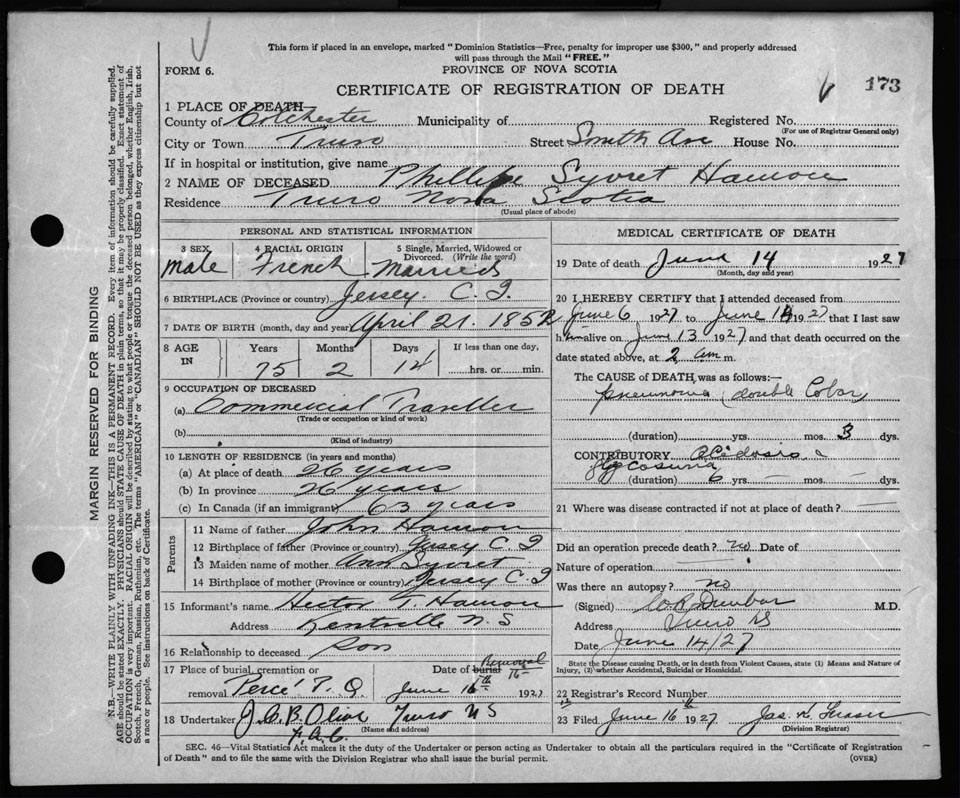 This form if placed in an envelope, marked "Dominion Statistics—Free, penalty for improper use $300," and properly addressed
will pass through the Mail "FREE."
FORM 6.
PROVINCE OF NOVA SCOTIA
CERTIFICATE OF REGISTRATION OF DEATH
173
1 PLACE OF DEATH
County of Colchester Municipality of Registered No.
(For use of Registrar General only)
City or Town Truro Street Smith Ave House No.
If in hospital or institution, give name
2 NAME OF DECEASED Phillipe Syvret Hamon
Residence Truro Nova Scotia
(Usual place of abode)
PERSONAL AND STATISTICAL INFORMATION
3 SEX 4 RACIAL ORIGIN 5 Single, Married, Widowed or Divorced. (Write the word)
Male French Married
6 BIRTHPLACE (Province or country) Jersey. C. I.
7 DATE OF BIRTH (month, day and year) April 21. 1852
8 AGE IN Years Months Days If less than one day,
75 2 14 hrs. or min.
9 OCCUPATION OF DECEASED
(a) Commercial Traveller
(Trade or occupation or kind of work)
(b)
(Kind of industry)
10 LENGTH OF RESIDENCE (in years and months)
(a) At place of death 26 years
(b) In province 26 years
(c) In Canada (if an immigrant) 63 years
Parents
11 Name of father John Hamon
12 Birthplace of father (Province or country) Jersey C. I
13 Maiden name of mother Ann Syvret
14 Birthplace of mother (Province or country) Jersey C I
15 Informant's name Hector T. Hamon
Address Kentville N. S
16 Relationship to deceased Son
17 Place of burial, cremation or removal Perce P. Q. Date of burial Removal
June 16th 1927
18 Undertaker J. C. B. Olive Truro N S
(Name and address)
MEDICAL CERTIFICATE OF DEATH
19 Date of death June 14 1927
(Month, day and year)
20 I HEREBY CERTIFY that I attended deceased from
June 6 1927 to June 14 1927 that I last saw
him alive on June 13 1927 and that death occurred on the
date stated above, at 2 am m.
The CAUSE of DEATH was as follows:—
pneumonia (double Lobar
(duration) yrs. mos. 3 dys.
CONTRIBUTORY Acidosis &
Glycosuria
(duration) 6 yrs. — mos. — dys.
21 Where was disease contracted if not at place of death? —
Did an operation precede death? no Date of
Nature of operation —
Was there an autopsy? no
(Signed) Dunbar M.D.
Address Truro NS
Date June 14/27
State the Disease causing Death, or in death from Violent Causes, state (1) Means and Nature of
Injury, (2) whether Accidental, Suicidal or Homicidal.
22 Registrar's Record Number
23 Filed June 16th 1927 Jas. K. Fraser
(Division Registrar)
SEC. 46—Vital Statistics Act makes it the duty of the Undertaker or person acting as Undertaker to obtain all the particulars required in the "Certificate of Registration
of Death" and to file the same with the Division Registrar who shall issue the burial permit.
(OVER)
MARGIN RESERVED FOR BINDING
N.B.—WRITE PLAINLY WITH UNFADING INK—THIS IS A PERMANENT RECORD. Every item of information should be carefully supplied.
AGE should be stated EXACTLY. PHYSICIANS should STATE CAUSE OF DEATH in plain terms, so that it may be properly classified. Exact statement of
OCCUPATION is very important. RACIAL ORIGIN will be described by stating to what people or tongue the deceased person belonged, whether English, Irish,
Scotch, French, German, Russian, Ruthenian, etc. The terms "AMERICAN" or "CANADIAN" SHOULD NOT BE USED as they express citizenship but not
a race or people. See instructions on back of Certificate.